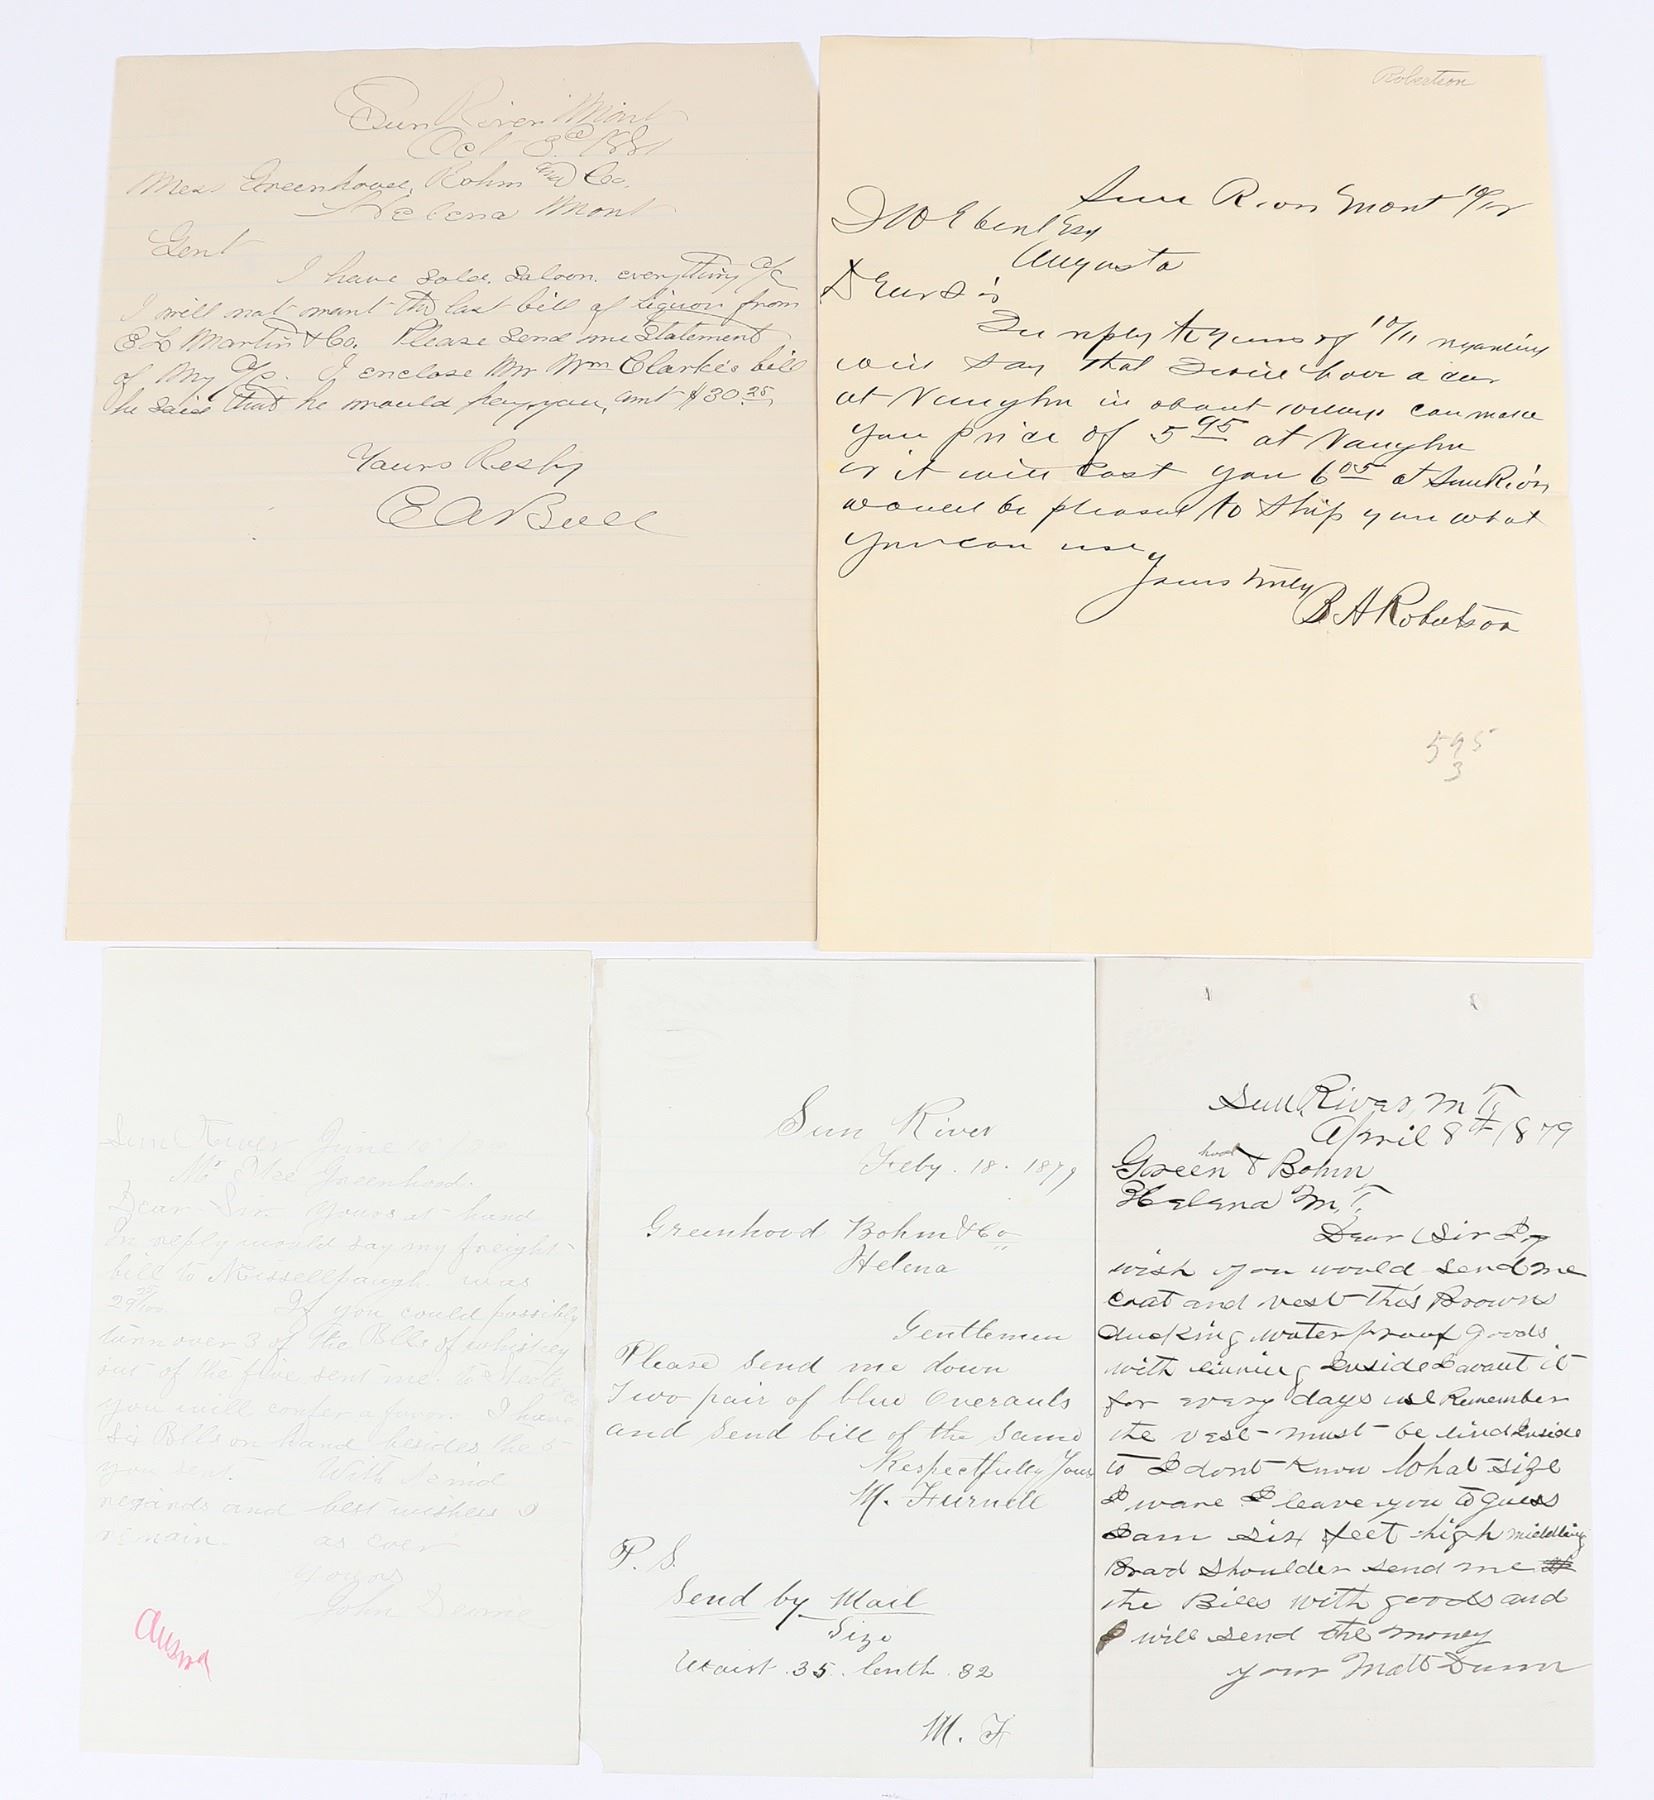 Sun River Mont
Oct 3d 1881
Mess Greenhood, Bohm and Co.
Helena Mont
Gent
I have sold saloon. everything a/c
I will not want the last bill of liquor from
E L Martin & Co. Please send me statement
of my a/c. I enclose Mr Wm Clarke's bill
he said that he would pay you, amt $30.25
Yours Resply
E A Buell
Robertson
Sun River Mont 10/12
Augusta
Dear Sir
In reply to yours of 10/11 regarding
will say that I will have a car
at Vaughn in about 10 days can make
you price of 5 95 at Vaughn
or it will cost you 6 05 at Sun River
would be pleased to ship you what
you can use
Yours truly
B A Robertson
595
3
Sun River June
Mr Greenhood.
Dear Sir Yours at hand
In reply would say my freight
bill to Missellpaugh was
If you could possibly
turn over 3 of the Blls of whiskey
out of the five sent me to
you will confer a favor. I have
Six Blls on hand besides the 5
you sent. With kind
regards and best wishes I
remain. as ever
Yours
John
Ansrd
Sun River
Feby. 18. 1879
Greenhood Bohm & Co
Helena
Gentlemen
Please Send me down
Two pair of blue Overauls
and Send bill of the Same
Respectfully Yours
M. Furnell
P. S.
Send by Mail
Size
Waist. 35. lenth. 32
M. F
Sun River, M T,
April 8th 1879
Green hood & Bohm
Helena M, T,
Dear Sir I
wish you would send me
coat and vest this Browns
ducking water proof goods
with lining Inside I want it
for every days use Remember
the vest must be lind Inside
to I dont know What size
I ware I leave you to guess
I am six feet high middling
Brad shoulder send me
the Bills with goods and
I will send the money
your Matt Dunn